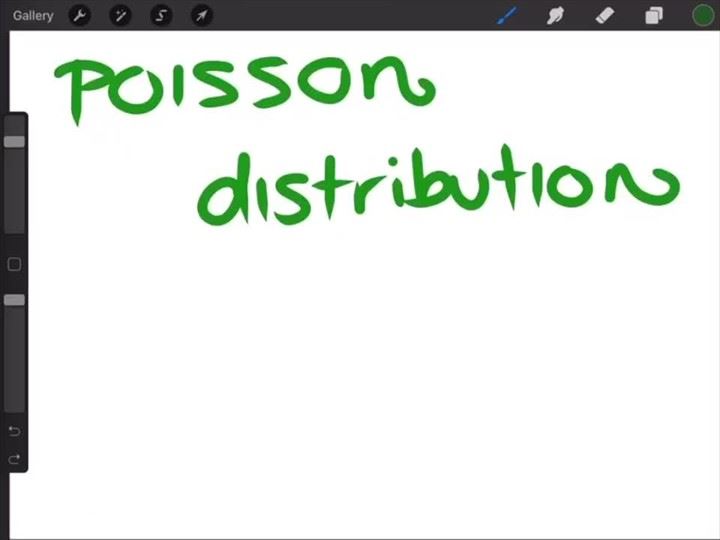 Gallery
Poisson
distribution